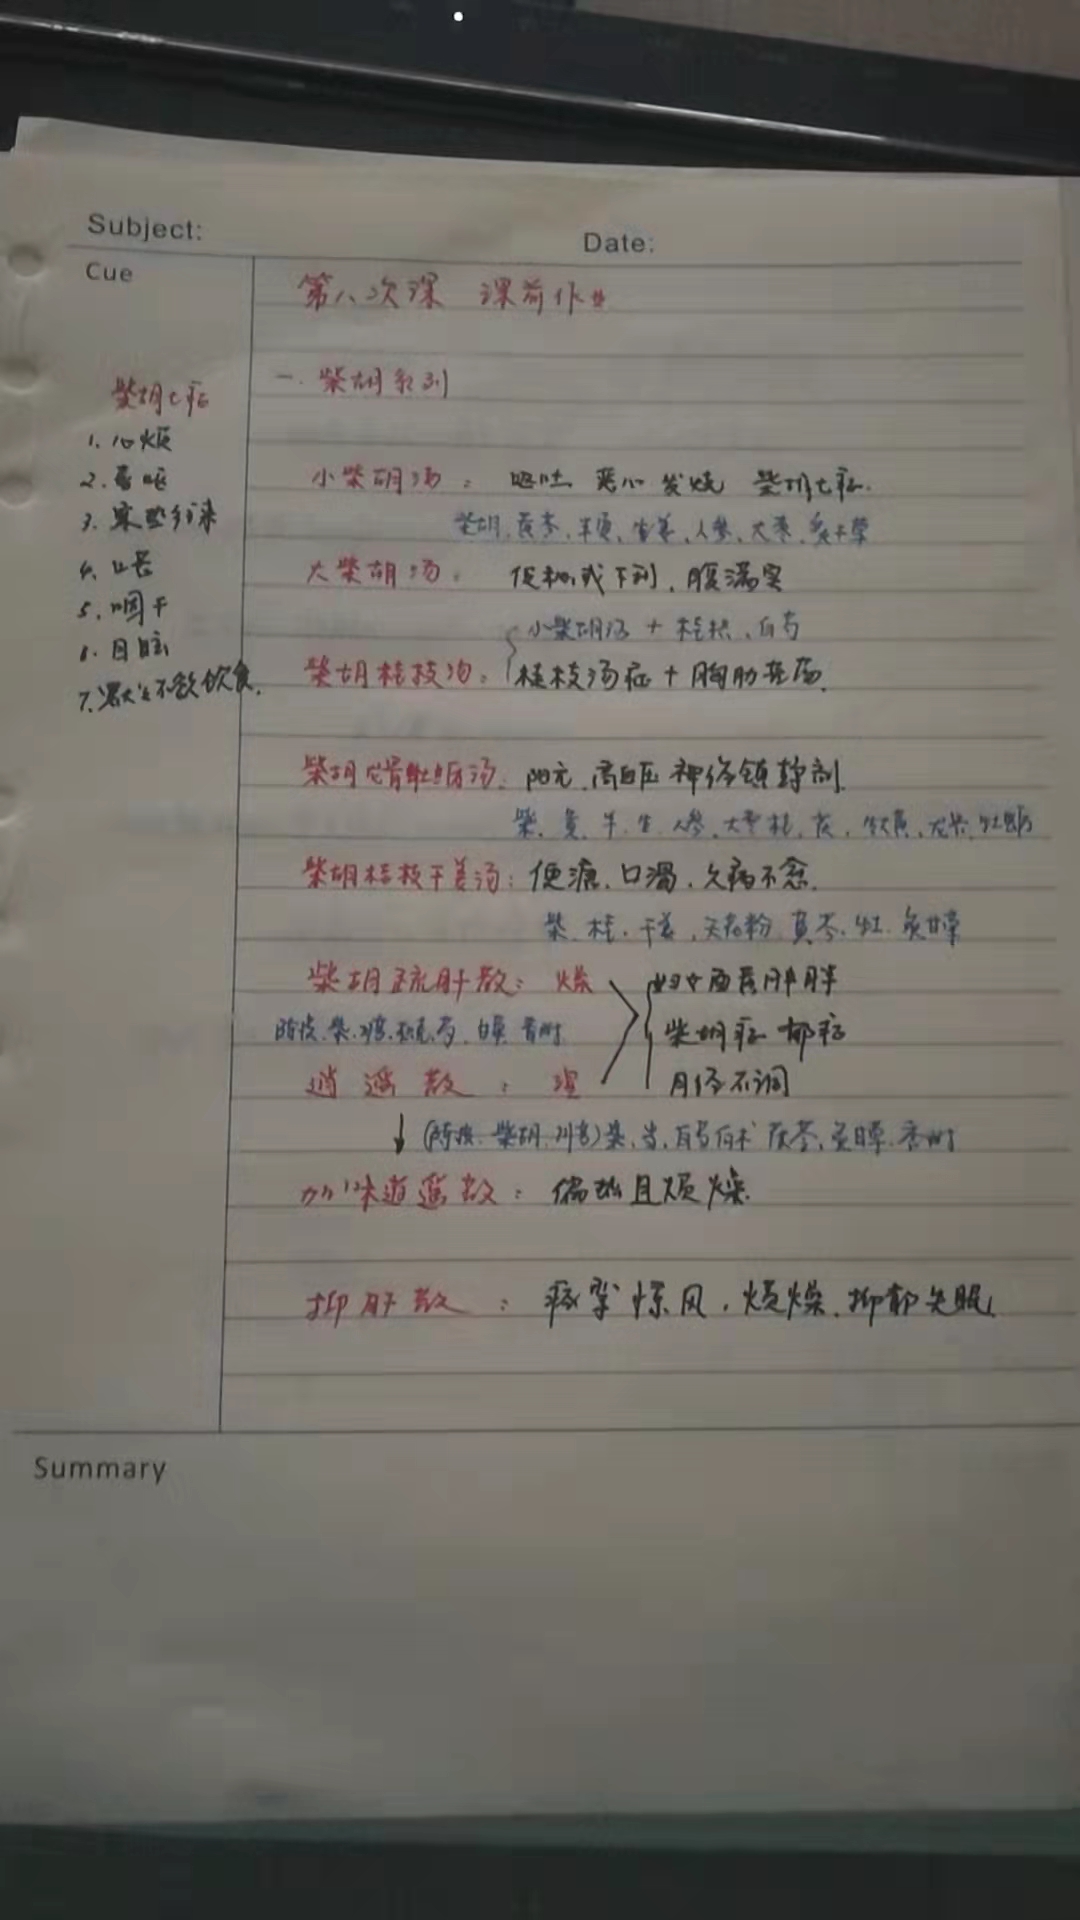 Subject:
Date:
Cue
第八次课 课前作业
一. 柴胡系列
柴胡七症
1. 心烦
2. 喜呕
3. 寒热往来
4. 口苦
5. 咽干
6. 目眩
7. 不欲饮食.
小柴胡汤: 呕吐 恶心 发烧 柴胡七症.
柴胡, 黄芩, 半夏, 生姜, 人参, 大枣, 炙甘草
大柴胡汤: 便秘或下利, 腹满实
小柴胡汤 + 枳实, 白芍
柴胡桂枝汤: 桂枝汤症 + 胸胁苦满.
柴胡龙骨牡蛎汤: 阳亢, 高血压 神经镇静剂.
柴, 黄, 半, 生, 人参, 大枣 桂, 茯, 大黄, 龙骨, 牡蛎
柴胡桂枝干姜汤: 便溏, 口渴, 久病不愈.
柴, 桂, 干姜, 天花粉, 黄芩, 牡, 炙甘草
柴胡疏肝散: 燥
妇女
柴胡症 郁症
陈皮, 柴, 芍,
逍遥散: 湿
月经不调
(陈皮, 柴胡, 川芎) 柴, 当, 白芍 白术 茯苓, 炙甘草, 香附
加味逍遥散: 偏热且烦燥.
抑肝散: 痉挛惊风, 烦燥, 抑郁失眠.
Summary